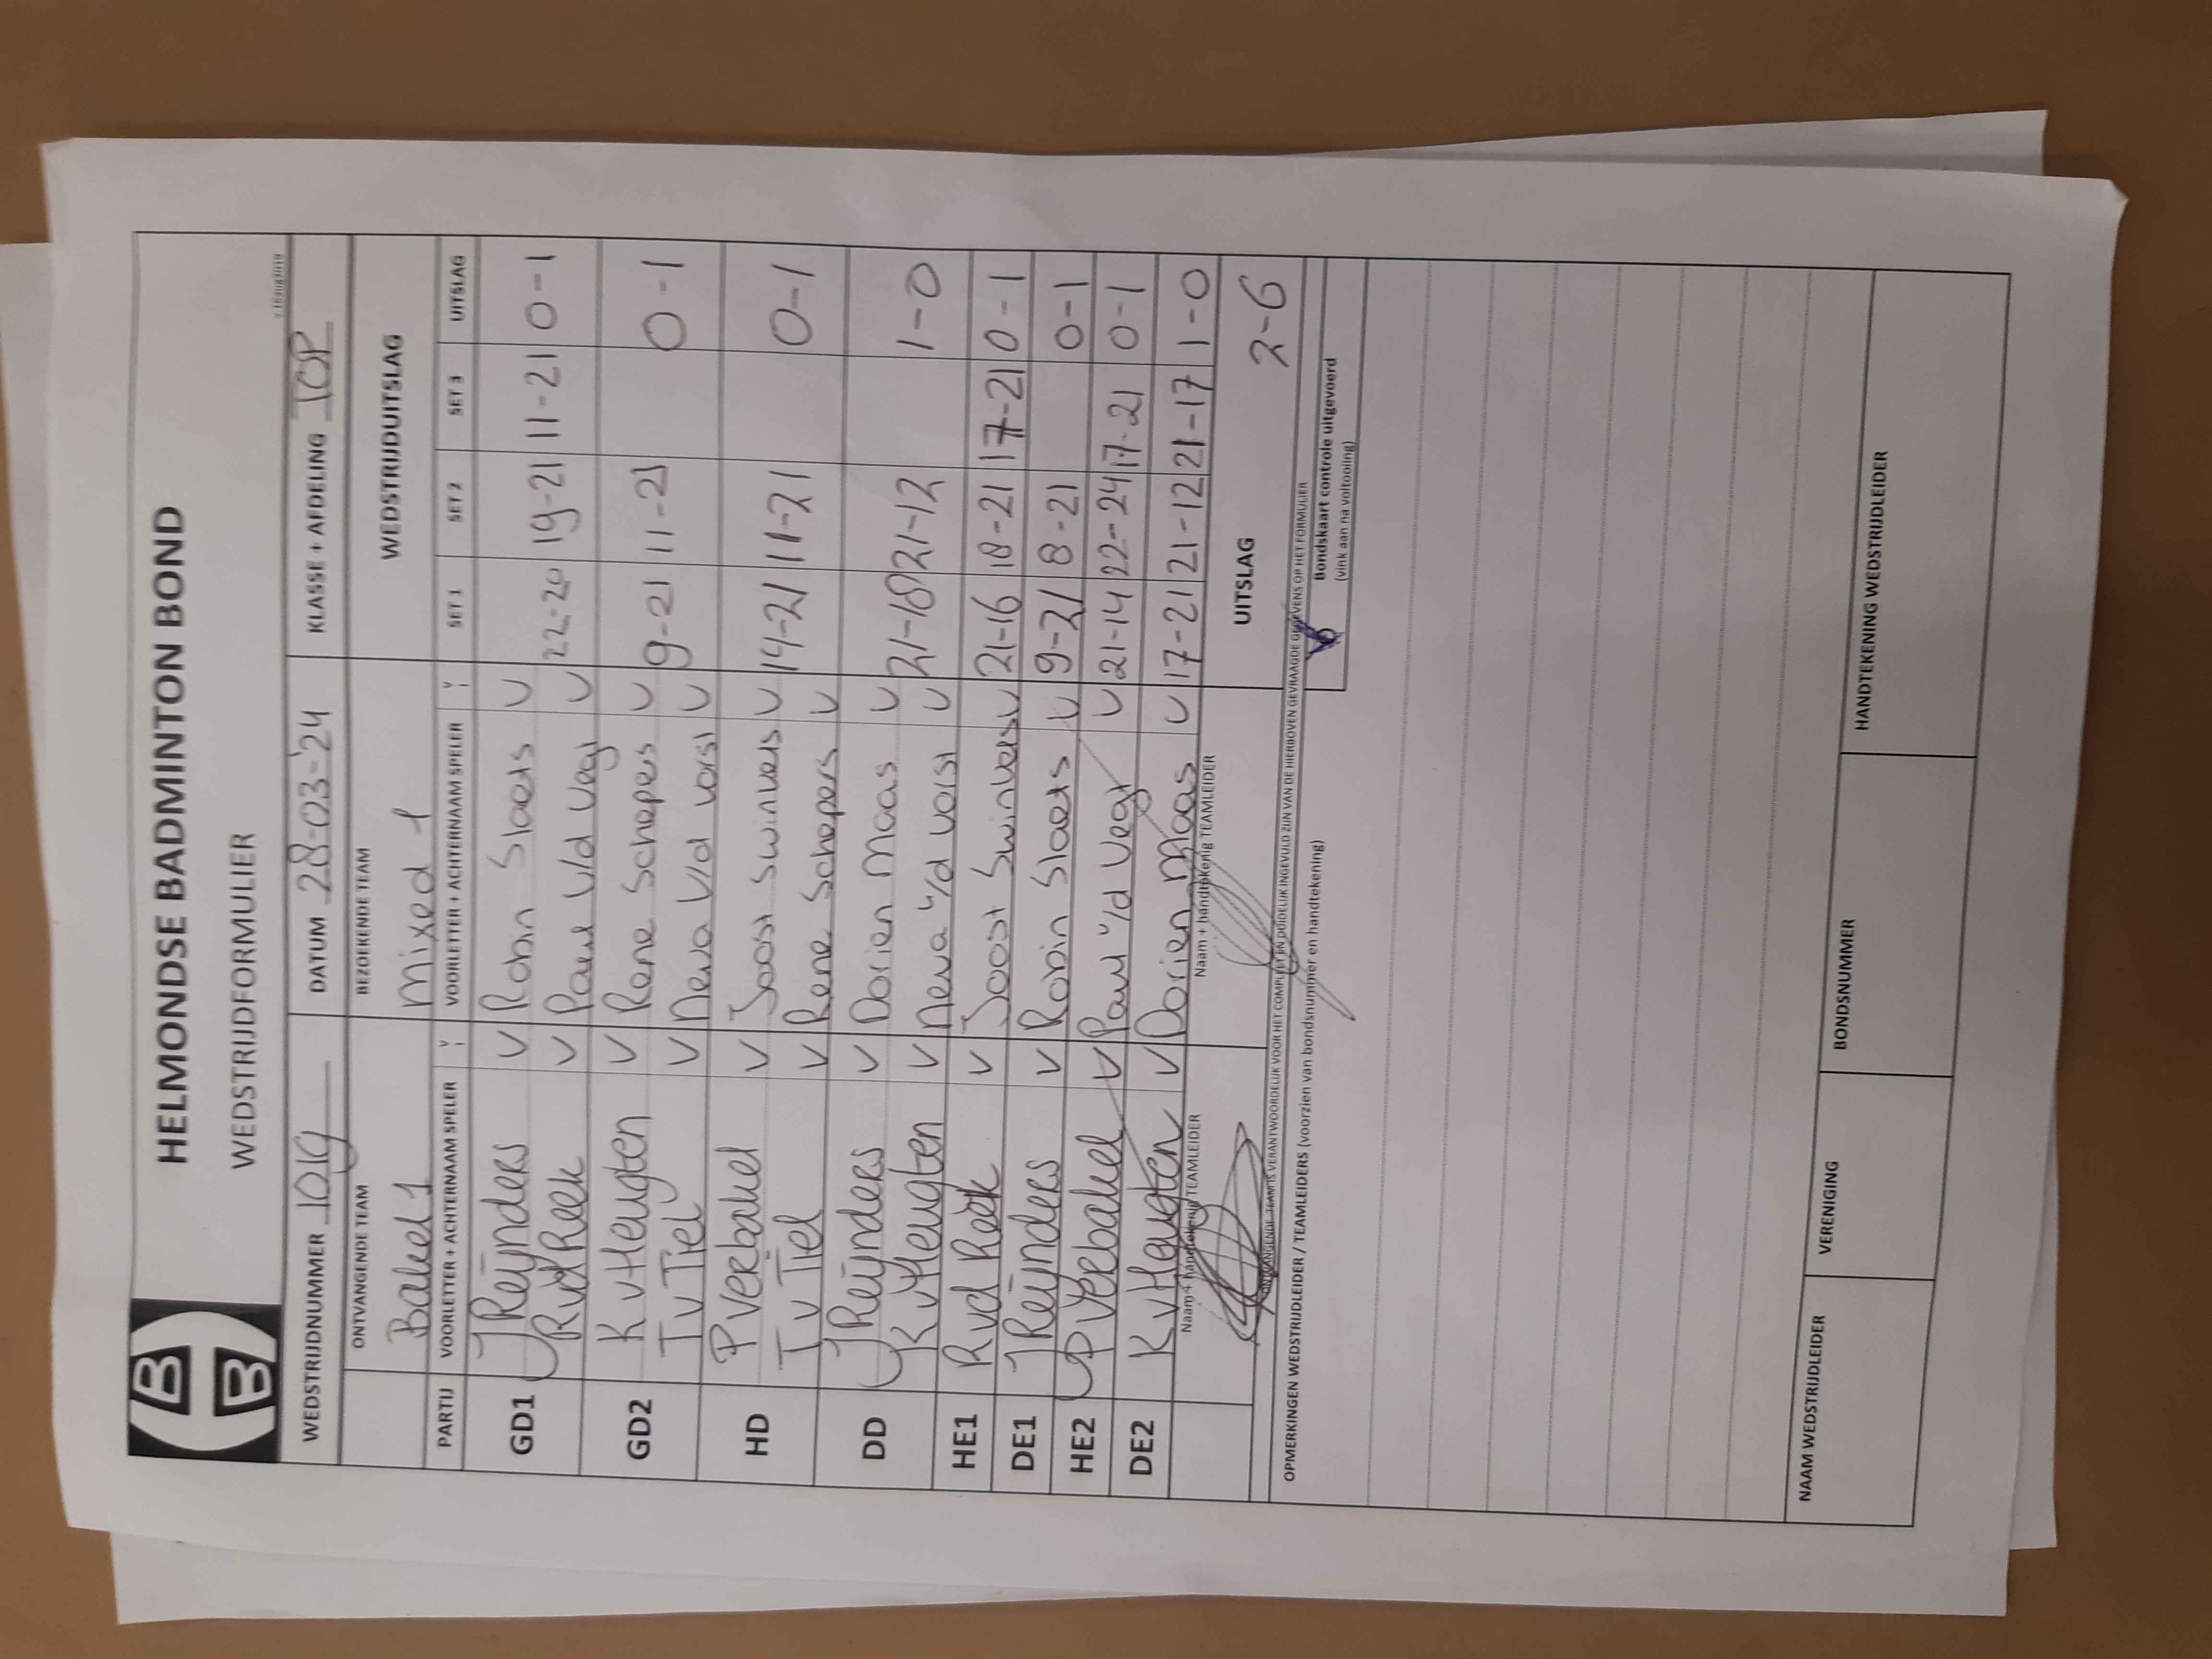 HELMONDSE BADMINTON BOND
WEDSTRIJDFORMULIER
WEDSTRIJDNUMMER 1019 DATUM 28-03-'24 KLASSE + AFDELING TOP
ONTVANGENDE TEAM BEZOEKENDE TEAM WEDSTRIJDUITSLAG
Bakel 1 Mixed 1
PARTIJ VOORLETTER + ACHTERNAAM SPELER V VOORLETTER + ACHTERNAAM SPELER V SET 1 SET 2 SET 3 UITSLAG
GD1 J Reijnders V Robin Slaets V 22-20 19-21 11-21 0-1
R vd Reek V Paul v/d Vegt V
GD2 K v Heugten V Rene Schepers V 9-21 11-21 0-1
T v Tiel V Neva v/d Vorst V
HD P Verbakel V Joost Swinkels V 14-21 11-21 0-1
T v Tiel V Rene Schepers V
DD J Reijnders V Dorien Maas V 21-18 21-12 1-0
K v Heugten V Neva v/d Vorst V
HE1 R vd Reek V Joost Swinkels V 21-16 18-21 17-21 0-1
DE1 J Reijnders V Robin Slaets V 9-21 8-21 0-1
HE2 P Verbakel V Paul v/d Vegt V 21-14 22-24 17-21 0-1
DE2 K v Heugten V Dorien Maas V 17-21 21-12 21-17 1-0
Naam + handtekenig TEAMLEIDER Naam + handtekenig TEAMLEIDER UITSLAG 2-6
ONTVANGENDE TEAM IS VERANTWOORDELIJK VOOR HET COMPLEET EN DUIDELIJK INGEVULD ZIJN VAN DE HIERBOVEN GEVRAAGDE GEGEVENS OP HET FORMULIER
OPMERKINGEN WEDSTRIJDLEIDER / TEAMLEIDERS (voorzien van bondsnummer en handtekening) Bondskaart controle uitgevoerd
(vink aan na voltooiing)
NAAM WEDSTRIJDLEIDER VERENIGING BONDSNUMMER HANDTEKENING WEDSTRIJDLEIDER